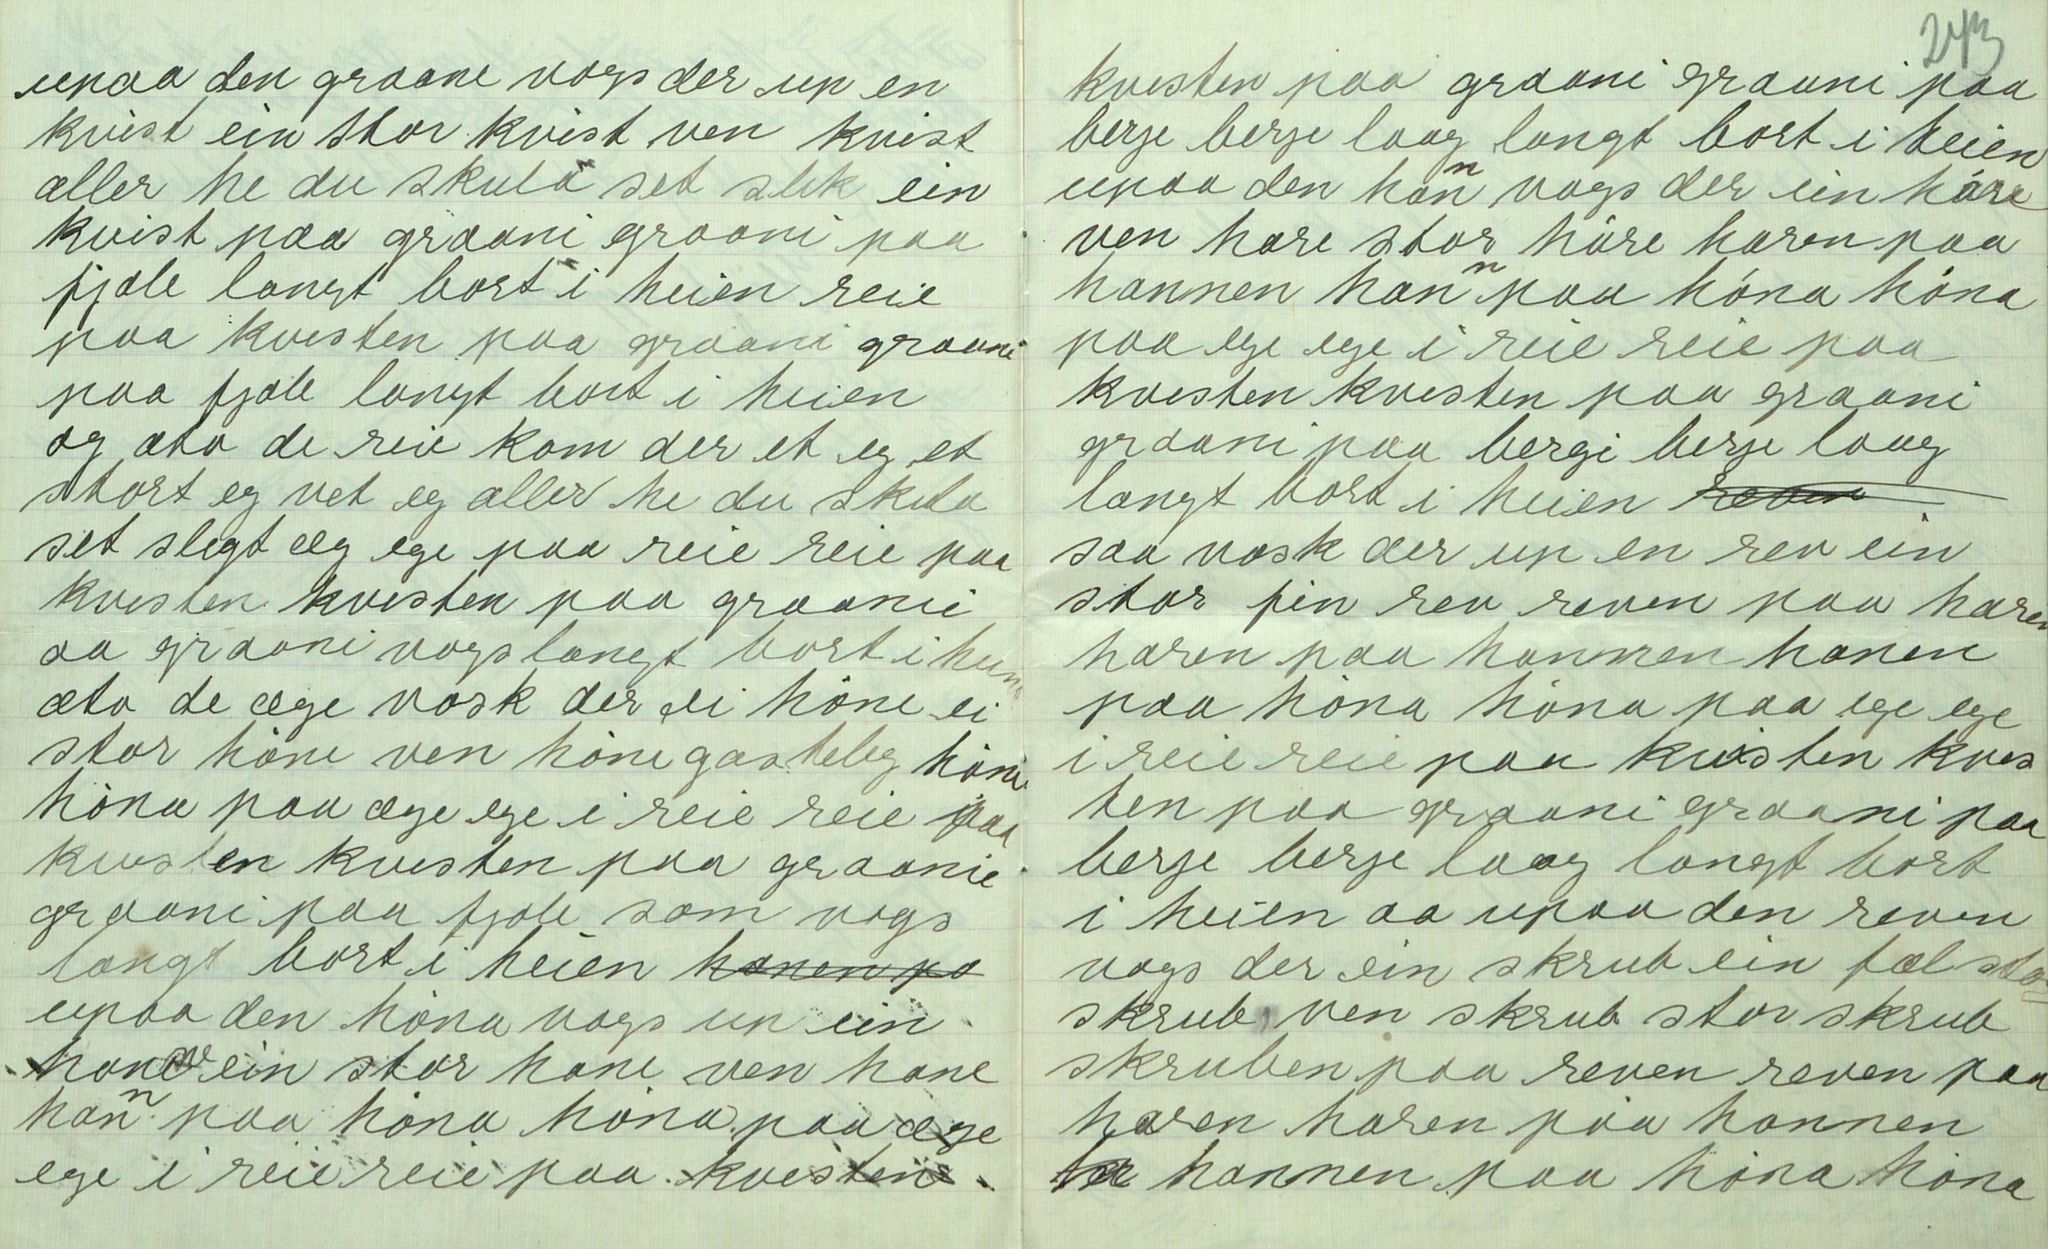 upaa den graane vogs der up en
kvist ein stor kvist ven kvist
aller he du skula set slik ein
kvist paa graani graani paa
fjøle langt bort i heien reie
paa kvesten paa graani graani
paa fjøle langt bort i heien
og æta de reie kom der et eg et
stort eg vet eg aller he du skula
set slegt æg ege paa reie reie paa
kvesten kvesten paa graanie
aa graani vogs langt bort i heien
æta de æge vosk der ei höne ei
stor höne ven höne gasteleg höne
höna paa æge ege i reie reie paa
kvesten kvesten paa graanie
graani paa fjøle som vogs
langt bort i heien hanen pa
upaa den höna vogs up ein
hane ein stor hane ven hane
hann paa höna höna paa æge
ege i reie reie paa kvesten
243
kvesten paa graani graani paa
berje berje laag langt bort i heien
upaa den hann vogs der ein hare
ven hare stor hare haren paa
hannen hann paa höna höna
paa ege ege i reie reie paa
kvesten kvesten paa graani
graani paa bergi berje laag
langt bort i heien reven
saa vosk der up en rev ein
stor fin rev reven paa haren
haren paa hannen hanen
paa höna höna paa ege ege
i reie reie paa kvisten kves
ten paa graani graani paa
berje berje laag langt bort
i heien aa upaa den reven
vogs der ein skrub ein fæl stor
skrub, ven skrub stor skrub
skruben paa reven reven paa
haren haren paa hannen
hannen paa höna höna